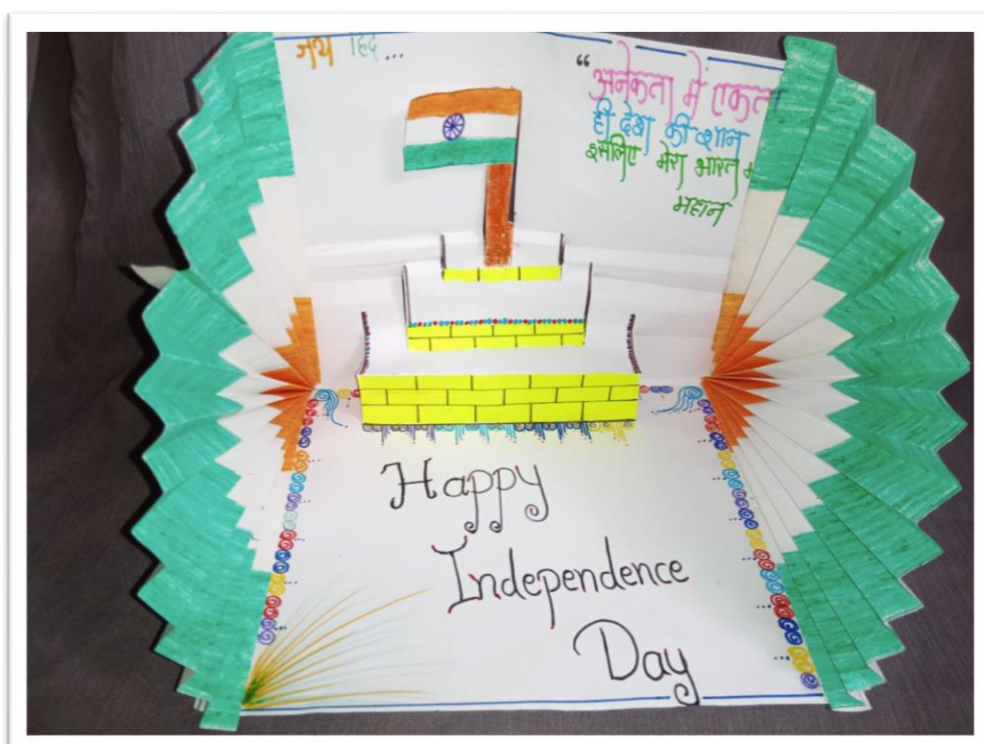 जय हिंद...
“अनेकता में एकता
ही देश की शान
इसलिए मेरा भारत
महान
Happy
Independence
Day